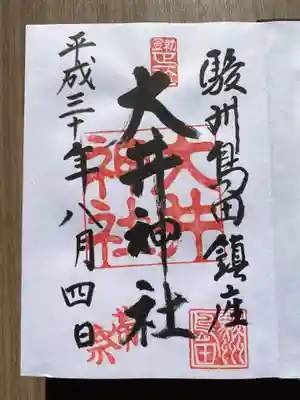 駿州島田鎮座
大井神社
大井
神社
平成三十年八月四日